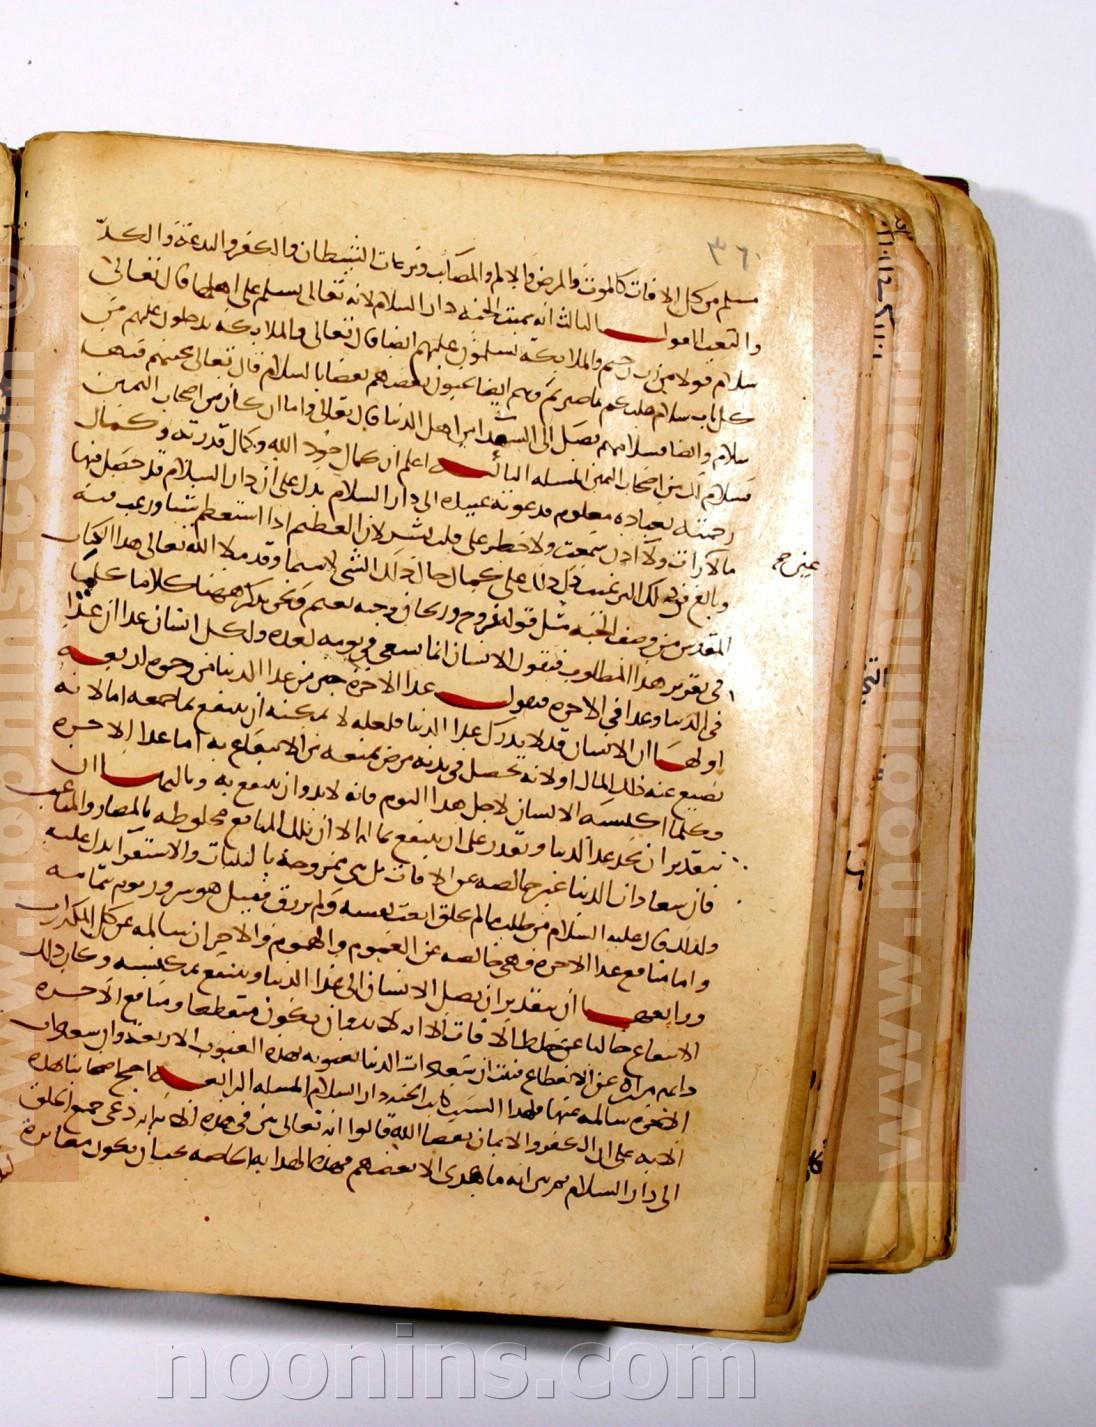 ٣٦٠
مسلم من كل الافات كالموت والمرض والالم والمصائب ونزعات الشيطان والكفر والبدعة والكد
والتعب القول الثالث انه سميت الجنه دار السلام لانه تعالى يسلم على اهلها قال تعالى
سلام قولا من رب رحيم والملائكة يسلمون عليهم ايضا قال تعالى والملائكة يدخلون عليهم من
كل باب سلام عليكم بما صبرتم وهم ايضا يحيون بعضهم بعضا بالسلام قال تعالى تحيتهم فيها
سلام وايضا فسلامهم يصل الى السعداء من اهل الدنيا قال تعالى واما ان كان من اصحاب اليمين
فسلام لك من اصحاب اليمين المسله الثالثه اعلم ان كمال جود الله وكمال قدرته وكمال
رحمته بعباده معلوم فدعوته عبيده الى دار السلام يدل على ان دار السلام قد حصل فيها
ما لا عين رات ولا اذن سمعت ولا خطر على قلب بشر لان العظيم اذا استعظم شيا ورغب فيه
وبالغ في ذلك الترغيب دل ذلك على كمال حال ذلك الشى لا سيما وقد ملا الله تعالى هذا الكتاب
المقدس من وصف الجنه مثل قوله فروح وريحان وجنه نعيم ونحن نذكر ههنا كلاما كليا
في تقرير هذا المطلوب فنقول الانسان انما يسعى في يومه لغده ولكل انسان غدان غدا
في الدنيا وغدا في الاخره فنقول غدا الاخره خير من غدا الدنيا من وجوه اربعه
اولها ان الانسان قد لا يدرك غدا الدنيا فلعله لا يمكنه ان ينتفع بما جمعه اما لانه
يضيع عنه ذلك المال او لانه يحصل في بدنه مرض يمنعه من الانتفاع به اما غدا الاخره
وكلما اكتسبه الانسان لاجل هذا اليوم فانه لا بد وان ينتفع به وثالثها ان
بتقدير ان يجد غدا الدنيا ويقدر على ان ينتفع بما الا ان تلك المنافع مخلوطه بالمضار والمتاعب
فان سعادات الدنيا غير خالصه عن الافات بل هي ممزوجة بالبليات والاستقرا يدل عليه
ولذلك قال عليه السلام من طلب ما لم يخلق اتعب نفسه ولم يرزق فقيل هو سرور يوم بتمامه
واما منافع غدا الاخره فهى خالصه عن الغموم والهموم والاحزان سالمه عن كل المكدرات
ورابعها ان بتقدير ان يصل الانسان الى غدا الدنيا وينتفع بمكتسبه وكان ذلك
الانتفاع خاليا عن خلط الافات الا انه لا بد وان يكون منقطعا ومنافع الاخره
دايم مبراة عن الانقطاع فثبت ان سعادات الدنيا مشوبه بهذه العيوب الاربعة وان سعادات
الاخره سالمه عنها فلهذا السبب كانت الجنه دار السلام المسله الرابعه احتج اصحابنا بهذه
الايه على ان الكفر والايمان بقضا الله قالوا انه تعالى بين في هذه الايه انه دعى جميع الخلق
الى دار السلام ثم بين انه ما هدى الا بعضهم فهذه الهدايه الخاصه يجب ان يكون مغايرة
عين ح
www.noonins.com
noonins.com